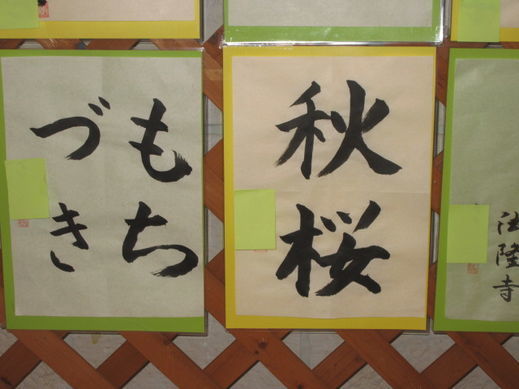 もち
づき
秋桜
法隆寺